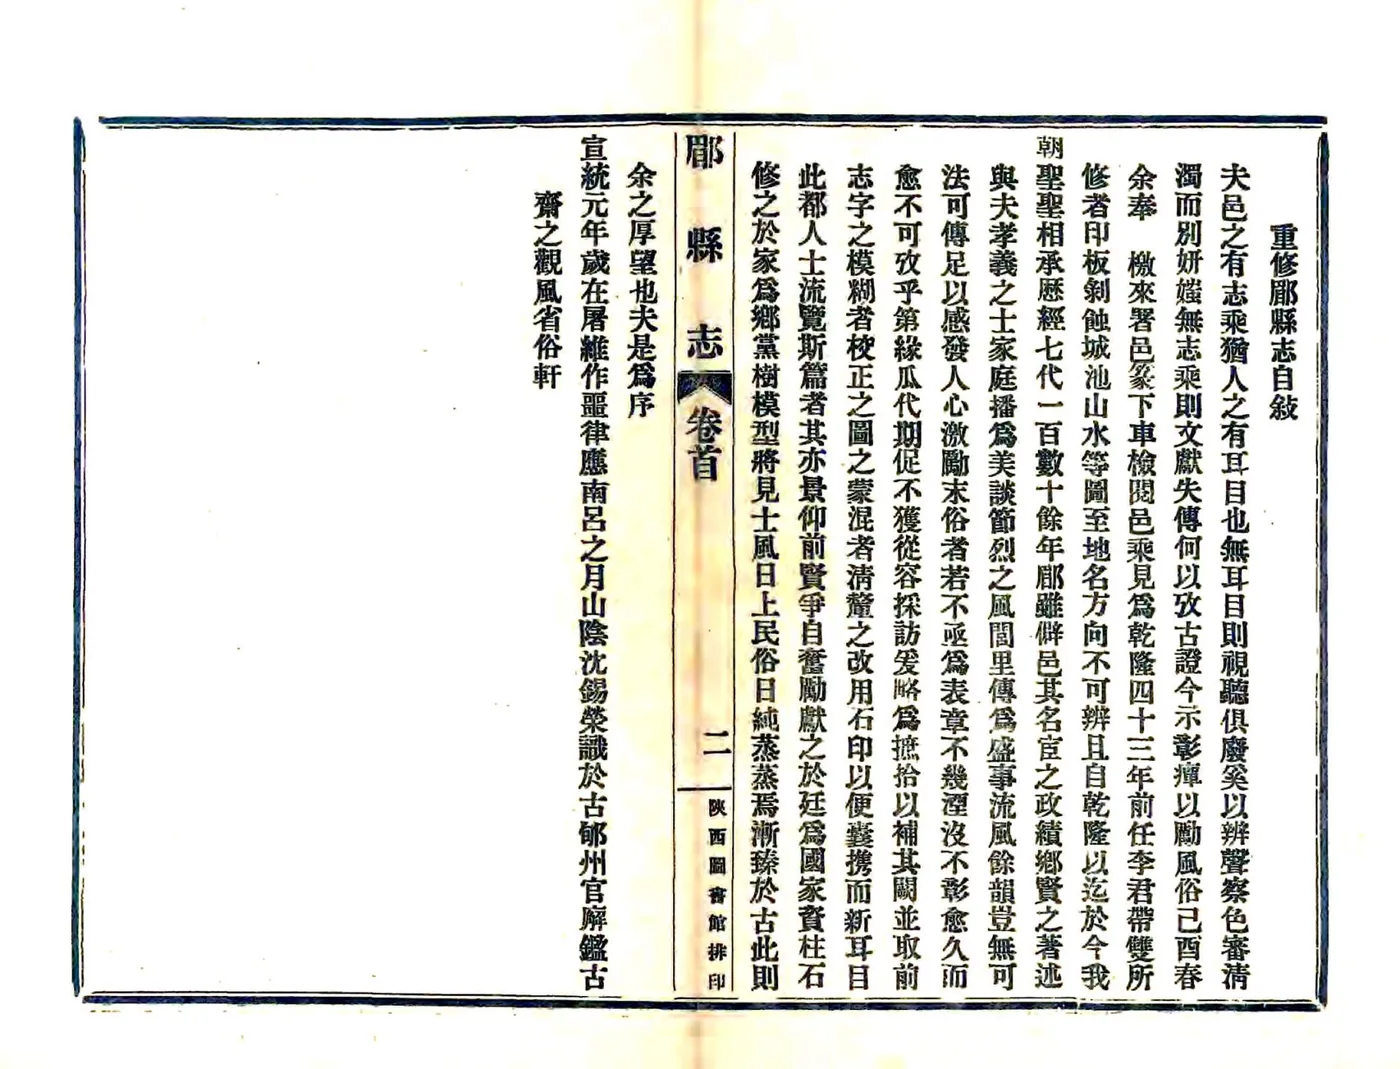 重修郿縣志自敍
夫邑之有志乘猶人之有耳目也無耳目則視聽俱廢奚以辨聲察色審淸
濁而別妍媸無志乘則文獻失傳何以攷古證今示彰癉以勵風俗己酉春
余奉　檄來署邑篆下車檢閱邑乘見爲乾隆四十三年前任李君帶雙所
修者印板剝蝕城池山水等圖至地名方向不可辨且自乾隆以迄於今我
朝聖聖相承歷經七代一百數十餘年郿雖僻邑其名宦之政績鄉賢之著述
與夫孝義之士家庭播爲美談節烈之風閭里傳爲盛事流風餘韻豈無可
法可傳足以感發人心激勵末俗者若不亟爲表章不幾湮沒不彰愈久而
愈不可攷乎第緣瓜代期促不獲從容採訪爰略爲摭拾以補其闕並取前
志字之模糊者校正之圖之蒙混者淸釐之改用石印以便囊携而新耳目
此都人士流覽斯篇者其亦景仰前賢爭自奮勵獻之於廷爲國家資柱石
修之於家爲鄉黨樹模型將見士風日上民俗日純蒸蒸焉漸臻於古此則
郿縣志
卷首
二
陝西圖書館排印
余之厚望也夫是爲序
宣統元年歲在屠維作噩律應南呂之月山陰沈錫榮識於古郇州官廨鑑古
齋之觀風省俗軒